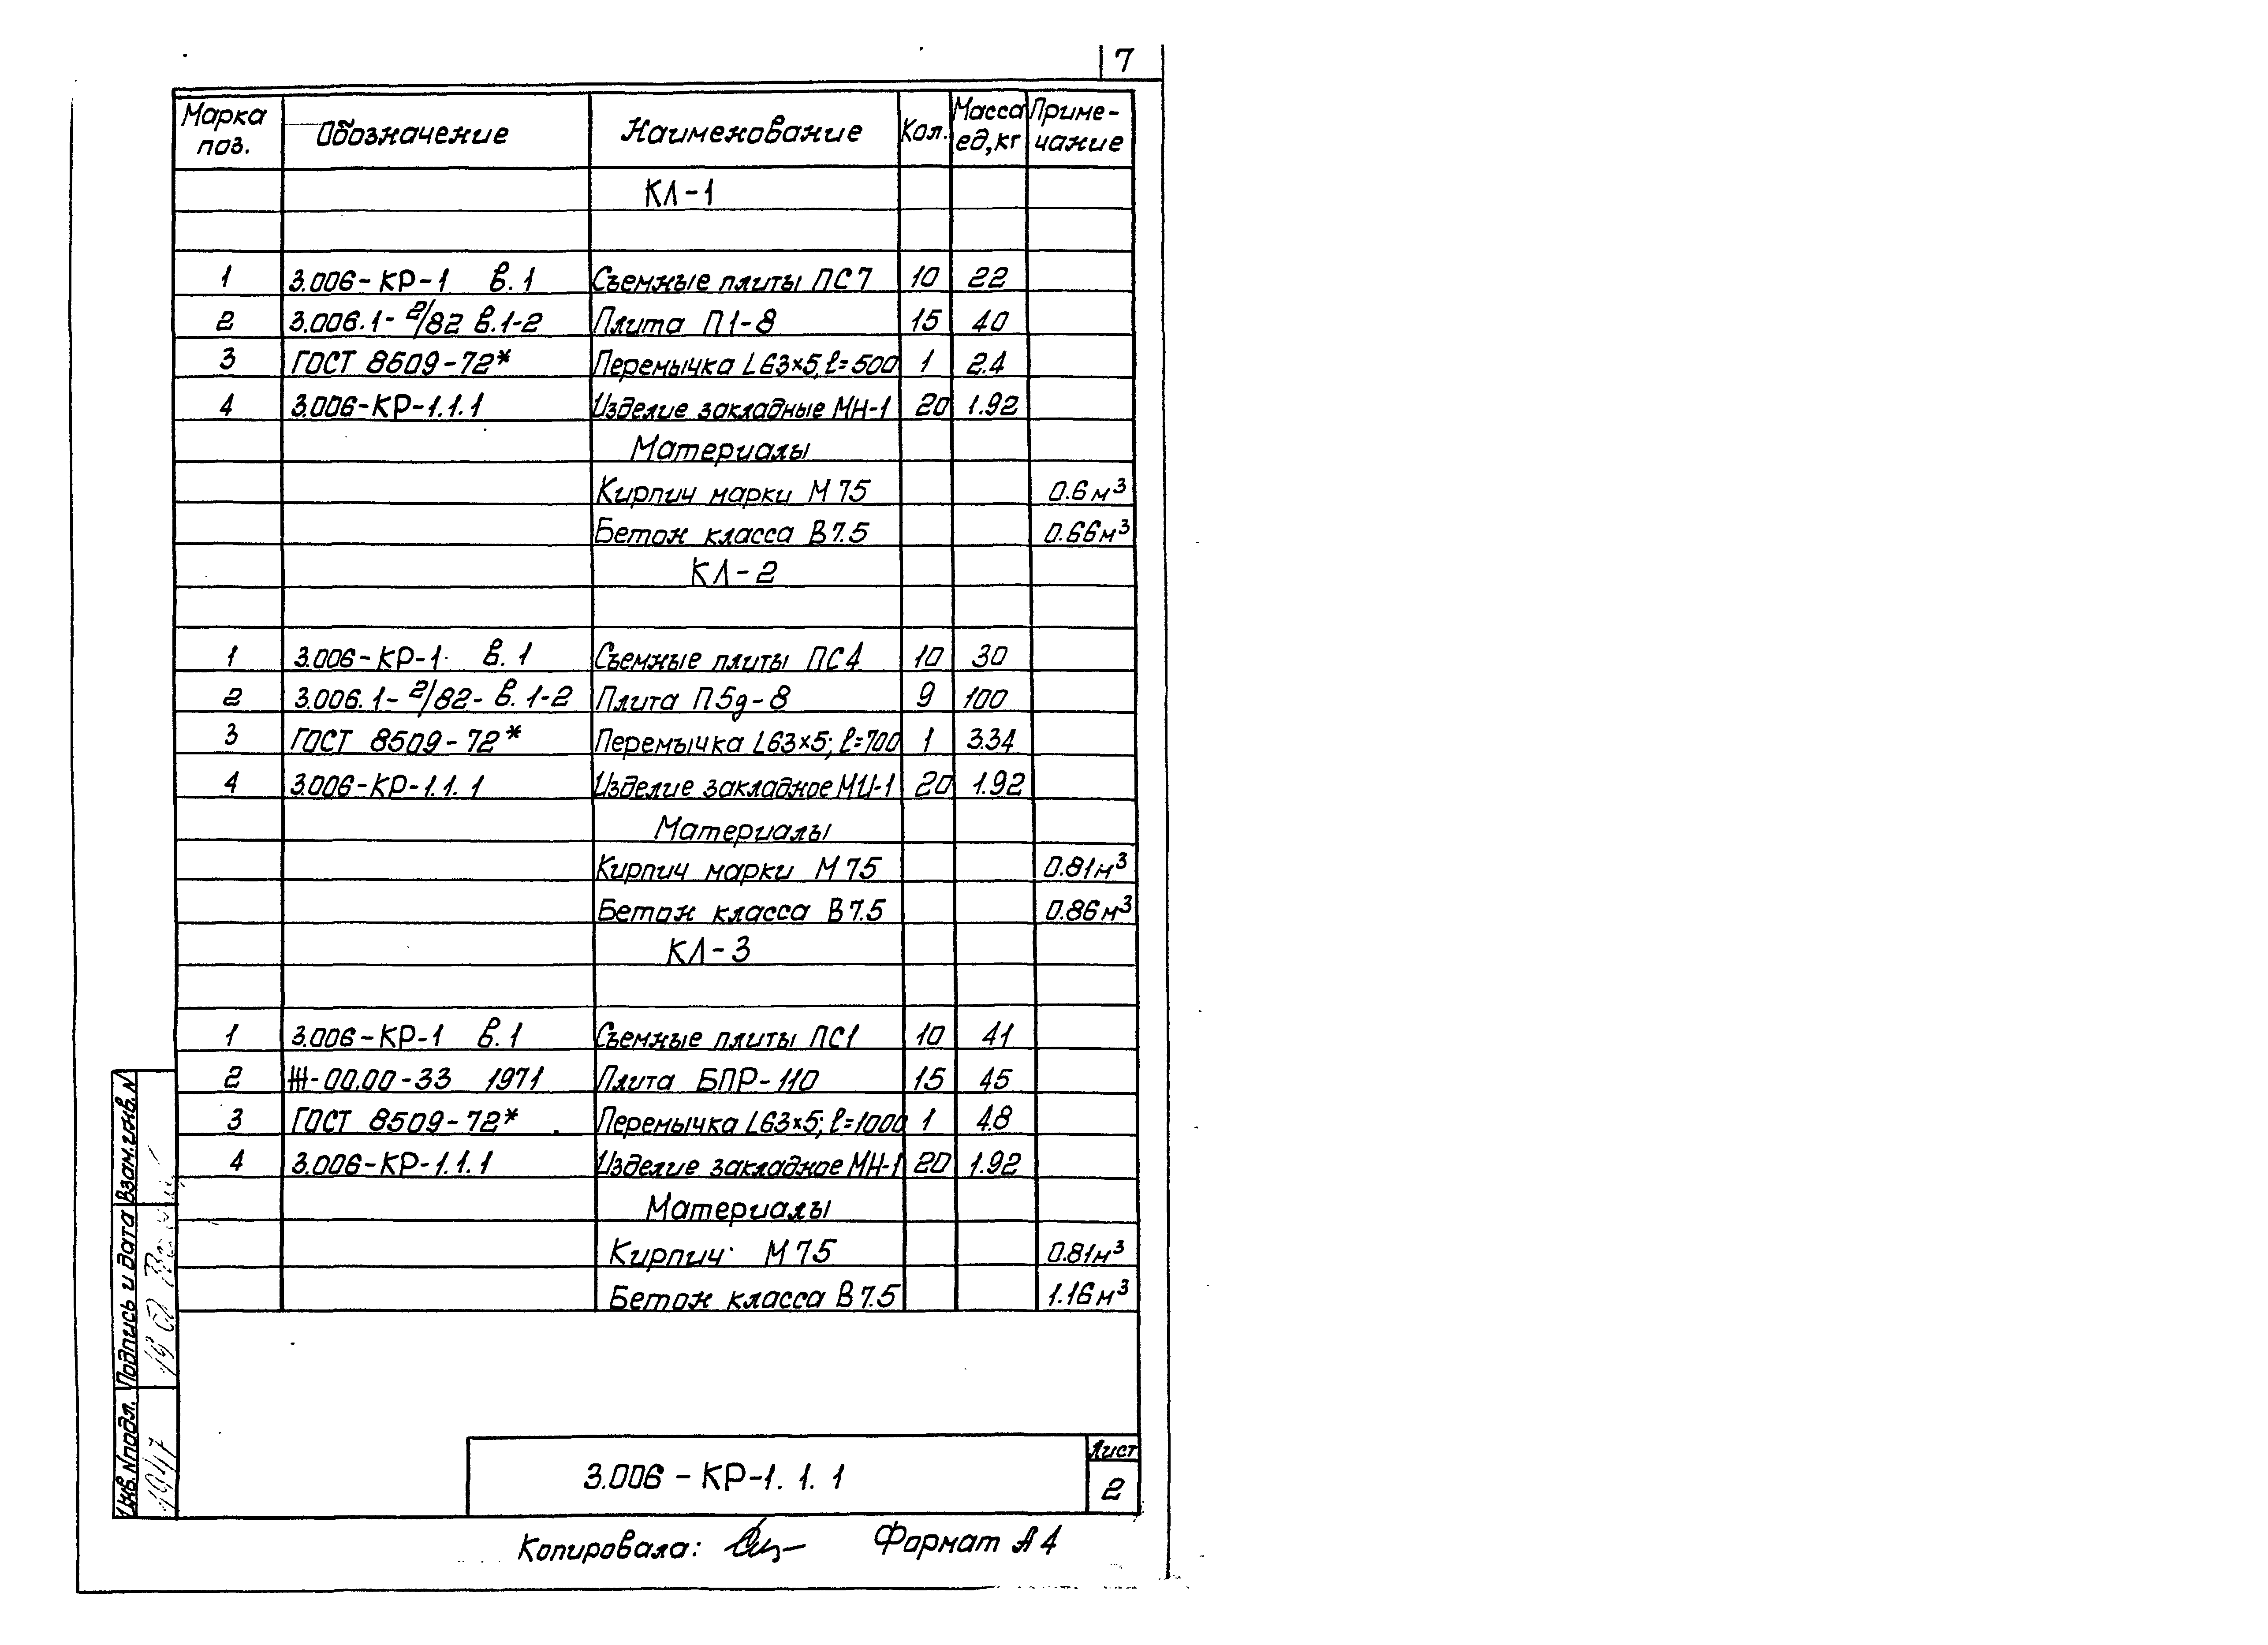 7
Марка поз. Обозначение Наименование Кол. Масса ед,кг Приме-чание
КЛ-1
1 3.006-КР-1 в.1 Съемные плиты ПС7 10 22
2 3.006.1-2/82 в.1-2 Плита П1-8 15 40
3 ГОСТ 8509-72* Перемычка L63×5, l=500 1 2.4
4 3.006-КР-1.1.1 Изделие закладные МН-1 20 1.92
Материалы
Кирпич марки М75 0.6м³
Бетон класса В7.5 0.66м³
КЛ-2
1 3.006-КР-1 в.1 Съемные плиты ПС4 10 30
2 3.006.1-2/82-в.1-2 Плита П5д-8 9 100
3 ГОСТ 8509-72* Перемычка L63×5; l=700 1 3.34
4 3.006-КР-1.1.1 Изделие закладное МН-1 20 1.92
Материалы
Кирпич марки М75 0.81м³
Бетон класса В7.5 0.86м³
КЛ-3
1 3.006-КР-1 в.1 Съемные плиты ПС1 10 41
2 Ж-00.00-33 1971 Плита БПР-110 15 45
3 ГОСТ 8509-72* Перемычка L63×5; l=1000 1 4.8
4 3.006-КР-1.1.1 Изделие закладное МН-1 20 1.92
Материалы
Кирпич М75 0.81м³
Бетон класса В7.5 1.16м³
Взам.инв.N
Подпись и дата
Инв.Nподл.
3.006-КР-1.1.1
Лист
2
Копировала: Формат А4